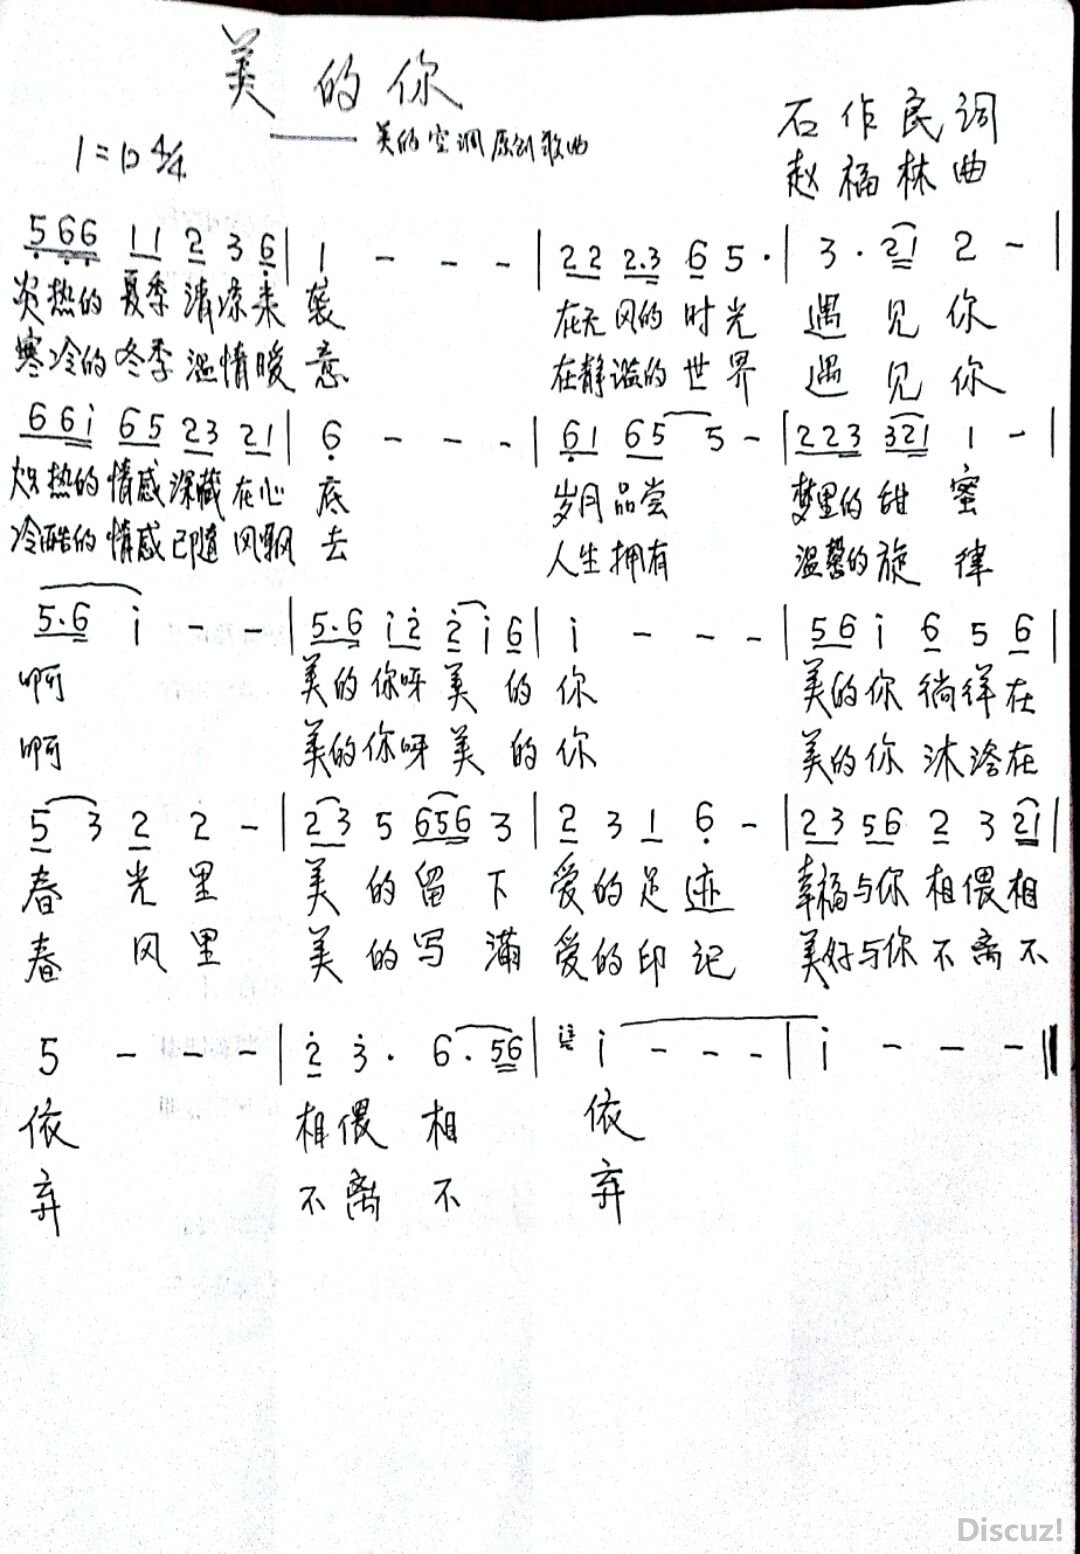 美的你
——美的空调原创歌曲
石作民词
1=D 4/4
赵福林曲
566 11 2 3 6 | 1 - - - | 22 2.3 6 5 · | 3 · 21 2 - |
炎热的夏季清凉来袭 在无风的时光 遇见你
寒冷的冬季温情暖意 在静谧的世界 遇见你
66i 65 23 21 | 6 - - - | 61 65 5 - | 223 321 1 - |
炽热的情感深藏在心底 岁月品尝 梦里的甜蜜
冷酷的情感已随风飘去 人生拥有 温馨的旋律
5·6 i - - | 5·6 i2 2 i 6 | i - - - | 56 i 6 5 6 |
啊 美的你呀美的你 美的你徜徉在
啊 美的你呀美的你 美的你沐浴在
5 3 2 2 - | 23 5 656 3 | 2 3 1 6 - | 23 56 2 3 21 |
春光里 美的留下 爱的足迹 幸福与你相偎相
春风里 美的写满 爱的印记 美好与你不离不
5 - - - | 2 3 · 6 · 56 | i - - - | i - - - ‖
依 相偎相 依
弃 不离不 弃
Discuz!